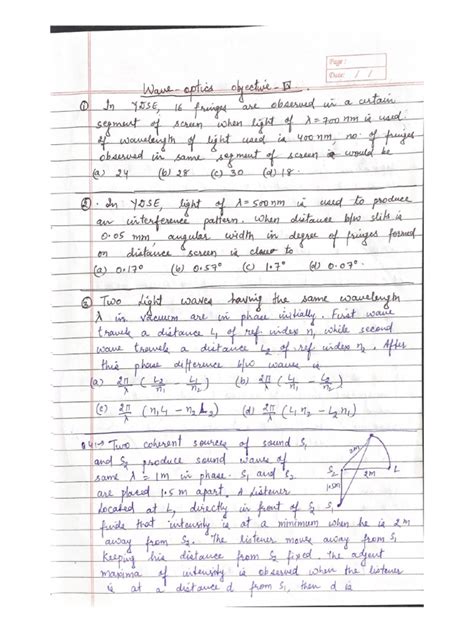 Page:
Date: / /
Wave-optics objective-IV.
① In YDSE, 16 fringes are observed in a certain
segment of screen when light of λ = 700 nm is used.
If wavelength of light used is 400 nm, no. of fringes
observed in same segment of screen would be
(a) 24 (b) 28 (c) 30 (d) 18.
② . In YDSE, light of λ = 500nm is used to produce
an interference pattern. When distance b/w slits is
0.05 mm angular width in degree of fringes formed
on distance screen is close to
(a) 0.17° (b) 0.57° (c) 1.7° (d) 0.07°.
③ Two light waves having the same wavelength
λ in vacuum are in phase initially. First wave
travels a distance L₁ of ref. index n, while second
wave travels a distance L₂ of ref. index n₂. After
this phase difference b/w waves is
(a) 2π/λ (L₂/n₁ - L₁/n₂) (b) 2π/λ (L₁/n₁ - L₂/n₂)
(c) 2π/λ (n₁L₁ - n₂L₂) (d) 2π/λ (L₁n₂ - L₂n₁)
Q4:→ Two coherent sources of sound S₁
and S₂ produce sound waves of
same λ = 1m in phase. S₁ and S₂
are placed 1.5 m apart. A listener
located at L, directly in front of S₂
finds that intensity is at a minimum when he is 2m
away from S₂. The listener moves away from S₁
keeping his distance from S₂ fixed. The adjent
maxima of intensity is observed when the listener
is at a distance d from S₁, then d is
2m
S₂
2m
L
1.5m
S₁